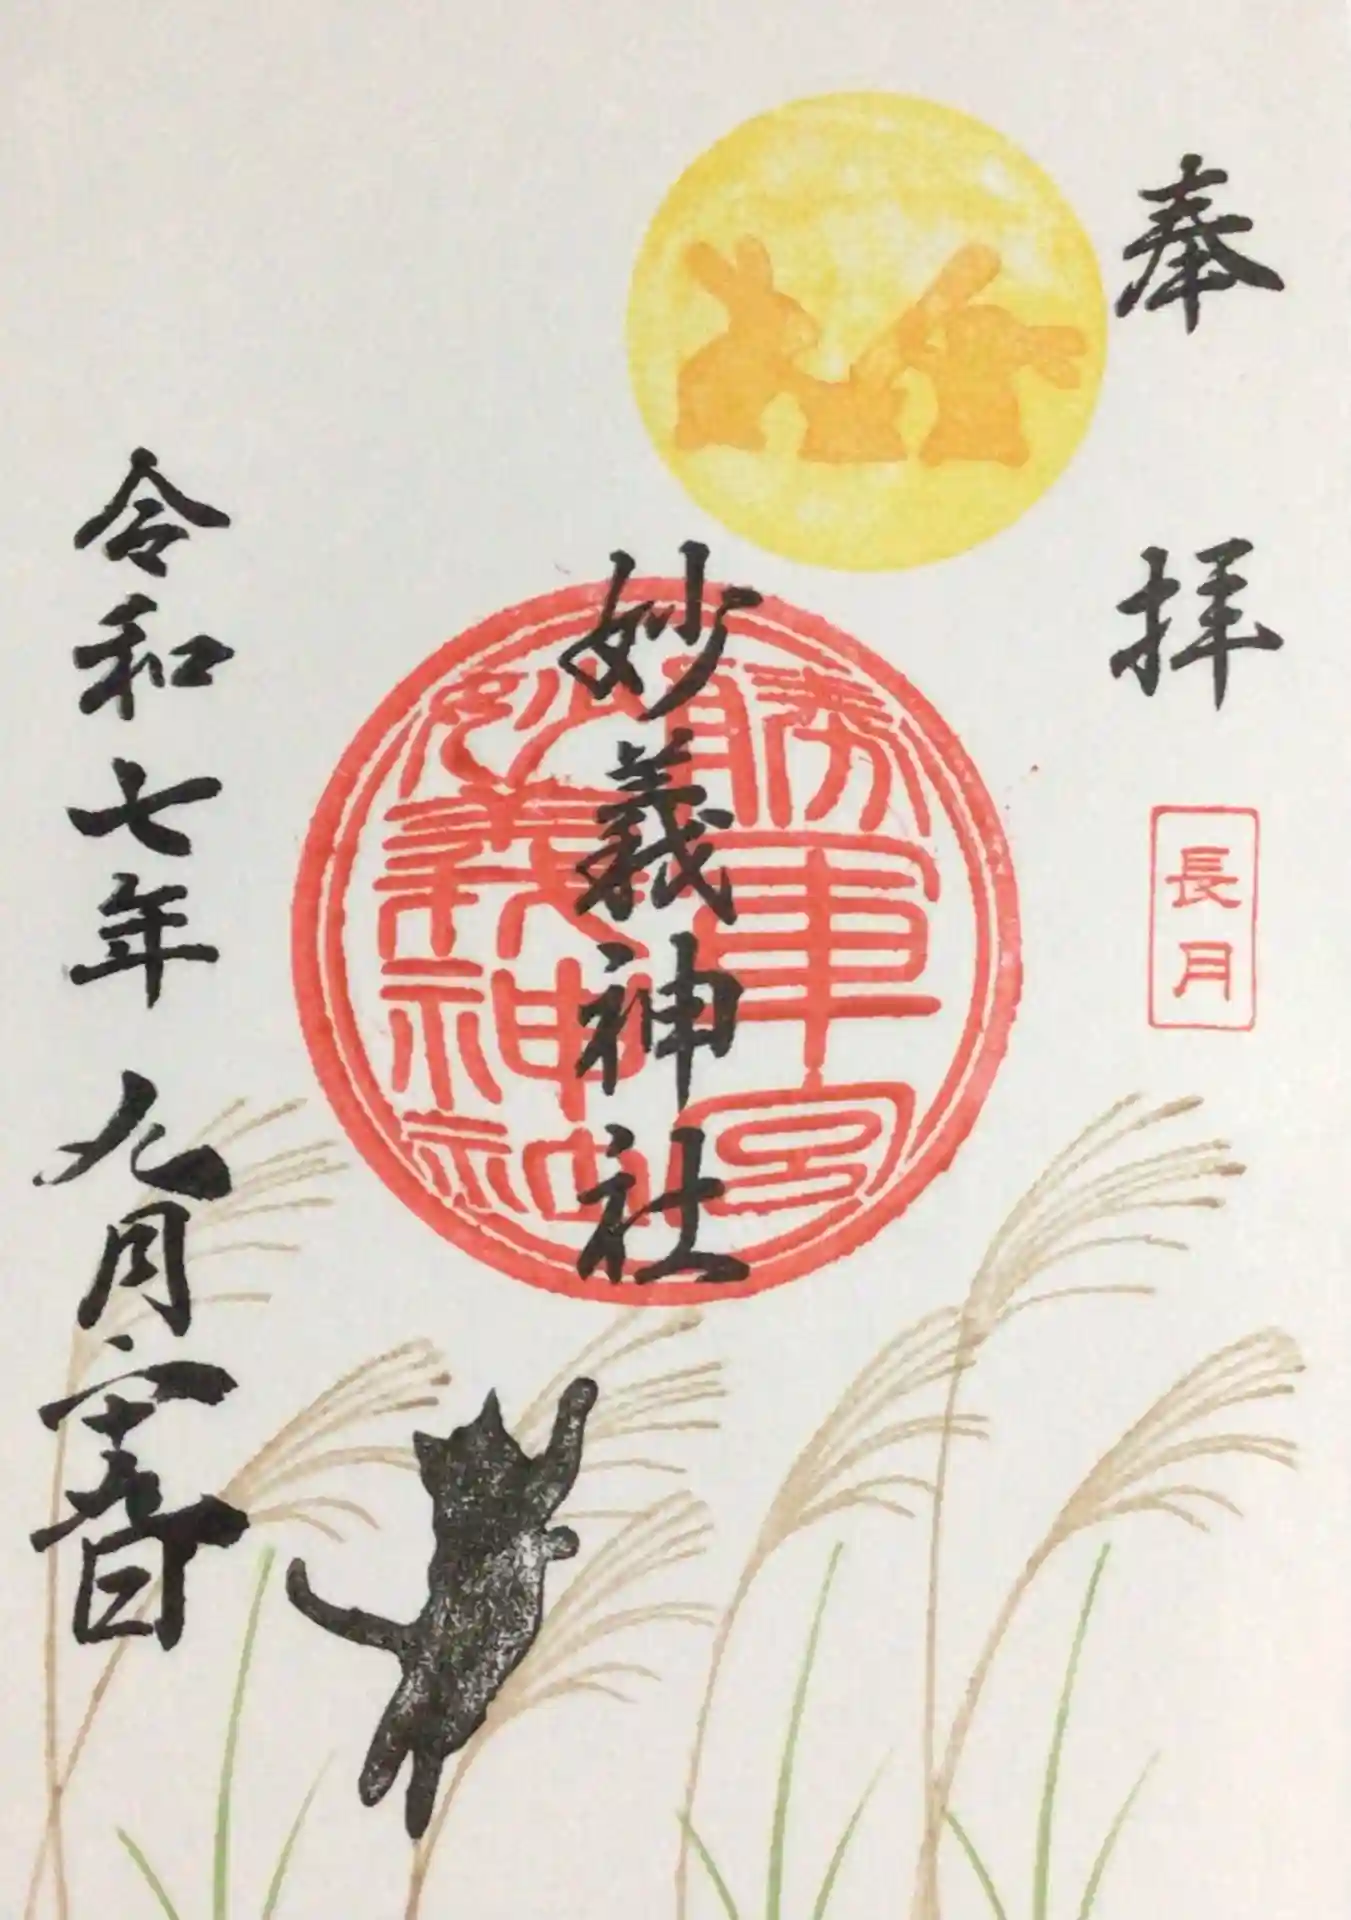 奉拝
長月
勝軍宮
妙義神社
妙義神社
令和七年九月二十九日